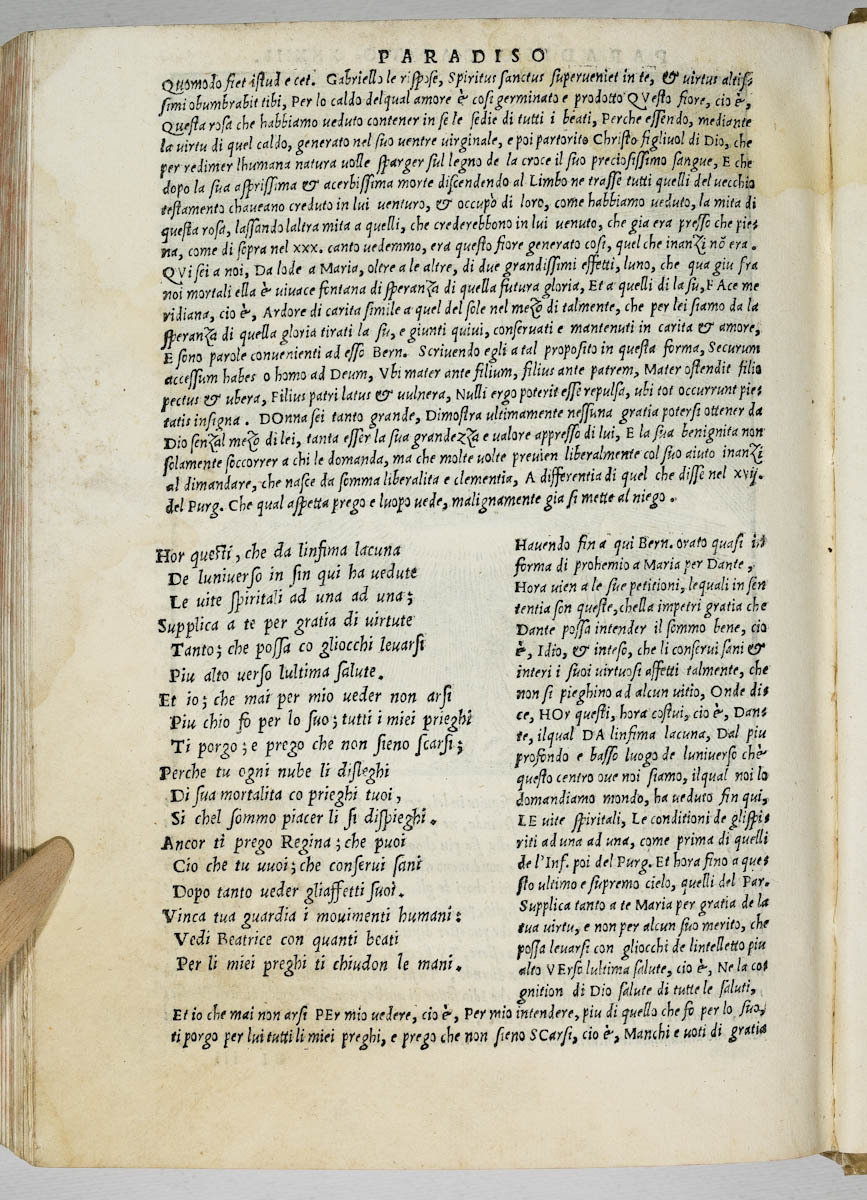 PARADISO
Quomodo fiet istud e cet. Gabriello le rispose, Spiritus sanctus superueniet in te, & uirtus altis=
simi obumbrabit tibi, Per lo caldo delqual amore è cosi germinato e prodotto QVesto fiore, cio è,
Questa rosa che habbiamo veduto contener in se le sedie di tutti i beati, Perche essendo, mediante
la uirtu di quel caldo, generato nel suo uentre uirginale, e poi partorito Christo figliuol di Dio, che
per redimer lhumana natura uolle sparger sul legno de la croce il suo preciosissimo sangue, E che
dopo la sua asprissima & acerbissima morte discendendo al Limbo ne trasse tutti quelli del uecchio
testamento chaueano creduto in lui uenturo, & occupò di loro, come habbiamo ueduto, la mita di
questa rosa, lassando laltra mita a quelli, che crederebbono in lui uenuto, che gia era presso che pie=
na, come di sopra nel xxx. canto uedemmo, era questo fiore generato cosi, quel che inanzi nõ era.
QVi sei a noi, Da lode a Maria, oltre a le altre, di due grandissimi effetti, luno, che qua giu fra
noi mortali ella è uiuace fontana di speranza di quella futura gloria, Et a quelli di la su, FAce me
ridiana, cio è, Ardore di carita simile a quel del sole nel mezo di talmente, che per lei siamo da la
speranza di quella gloria tirati la su, e giunti quiui, conseruati e mantenuti in carita & amore,
E sono parole conuenienti ad esso Bern. Scriuendo egli a tal proposito in questa forma, Securum
accessum habes o homo ad Deum, Vbi mater ante filium, filius ante patrem, Mater ostendit filio
pectus & ubera, Filius patri latus & uulnera, Nulli ergo poterit esse repulsa, ubi tot occurrunt pie=
tatis insigna. DOnna sei tanto grande, Dimostra ultimamente nessuna gratia potersi ottener da
Dio senzal mezo di lei, tanta esser la sua grandezza e ualore appresso di lui, E la sua benignita non
solamente soccorrer a chi le domanda, ma che molte uolte preuien liberalmente col suo aiuto inanzi
al dimandare, che nasce da somma liberalita e clementia, A differentia di quel che disse nel xvij.
del Purg. Che qual aspetta prego e luopo uede, malignamente gia si mette al niego.
Hor questi, che da linfima lacuna
De luniuerso in sin qui ha uedute
Le uite spiritali ad una ad una;
Supplica a te per gratia di uirtute
Tanto; che possa co gliocchi leuarsi
Piu alto uerso lultima salute.
Et io; che mai per mio ueder non arsi
Piu chio fo per lo suo; tutti i miei prieghi
Ti porgo; e prego che non sieno scarsi;
Perche tu ogni nube li disleghi
Di sua mortalita co prieghi tuoi,
Si chel sommo piacer li si dispieghi.
Ancor ti prego Regina; che puoi
Cio che tu uuoi; che conserui sani
Dopo tanto ueder gliaffetti suoi.
Vinca tua guardia i mouimenti humani:
Vedi Beatrice con quanti beati
Per li miei preghi ti chiudon le mani.
Hauendo fin a qui Bern. orato quasi in
forma di prohemio a Maria per Dante,
Hora uien a le sue petitioni, lequali in sen
tentia son queste, chella impetri gratia che
Dante possa intender il sommo bene, cio
è, Idio, & inteso, che li conserui sani &
interi i suoi uirtuosi affetti talmente, che
non si pieghino ad alcun uitio, Onde di=
ce, HOr questi, hora costui, cio è, Dan=
te, ilqual DA linfima lacuna, Dal piu
profondo e basso luogo de luniuerso chè
questo centro oue noi siamo, ilqual noi lo
domandiamo mondo, ha ueduto fin qui,
LE uite spiritali, Le conditioni de glispi=
riti ad una ad una, come prima di quelli
de l'Inf. poi del Purg. Et hora fino a que=
sto ultimo e supremo cielo, quelli del Par.
Supplica tanto a te Maria per gratia de la
tua uirtu, e non per alcun suo merito, che
possa leuarsi con gliocchi de lintelletto piu
alto VErso lultima salute, cio è, Ne la co=
gnition di Dio salute di tutte le saluti,
Et io che mai non arsi PEr mio uedere, cio è, Per mio intendere, piu di quello che fò per lo suo,
ti porgo per lui tutti li miei preghi, e prego che non sieno SCarsi, cio è, Manchi e uoti di gratia